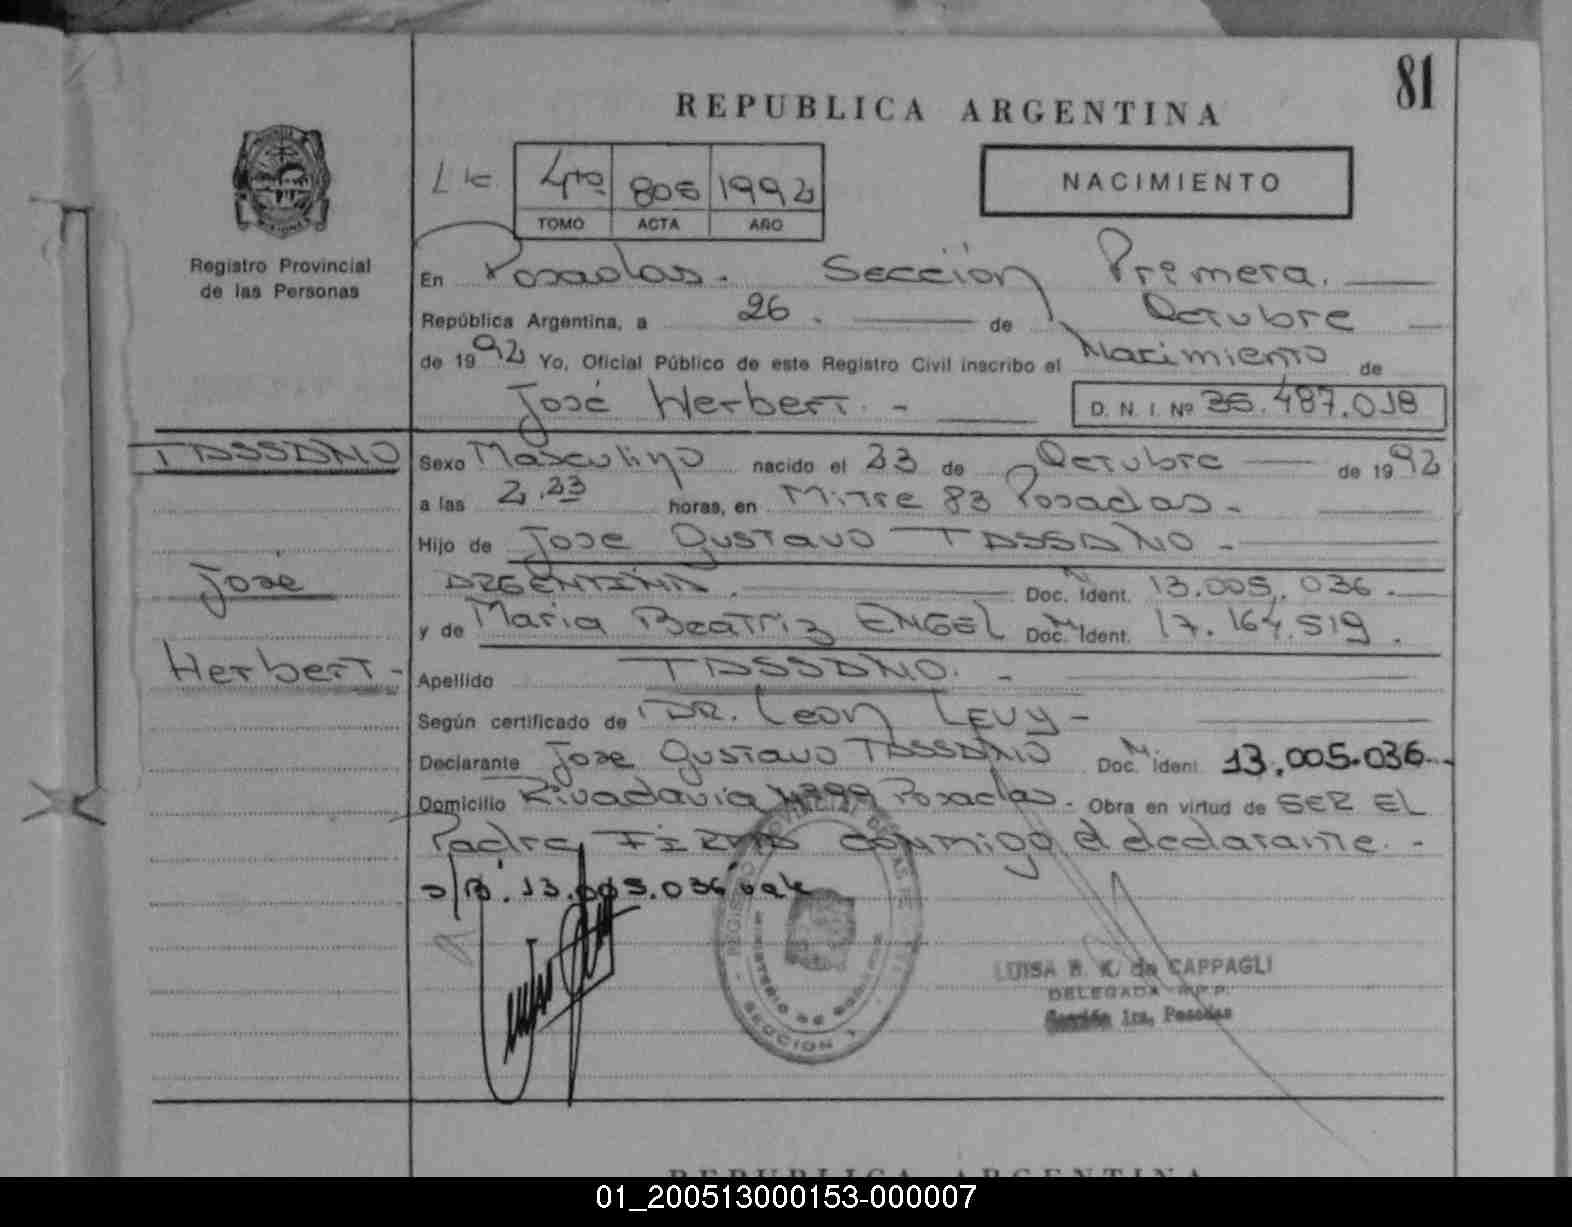 81
REPUBLICA ARGENTINA
4to 806 1992
TOMO ACTA AÑO
NACIMIENTO
Registro Provincial
de las Personas
En Posadas. Sección Primera.
República Argentina, a 26. de Octubre
de 1992 Yo, Oficial Público de este Registro Civil inscribo el Nacimiento de
José Herbert. -
D. N. I. Nº 36.487.018
TASSANO
José
Herbert-
Sexo Masculino nacido el 23 de Octubre de 1992
a las 2.23 horas, en Mitre 83 Posadas.-
Hijo de Jose Gustavo TASSANO-
ARGENTINA. Doc. N Ident. 13.005.036.
y de Maria Beatriz ENGEL Doc. N Ident. 17.164.519.
Apellido TASSANO. -
Según certificado de DR. Leon LEVY-
Declarante Jose Gustavo TASSANO Doc. N Ident. 13.005.036.
Domicilio Rivadavia Posadas. Obra en virtud de SER EL
Padre FIRMA conmigo el declarante. -
13.005.036 vale
REGISTRO PROVINCIAL DE LAS PERSONAS
MINISTERIO DE GOBIERNO
SECCION 1
LUISA B. K. de CAPPAGLI
DELEGADA R.P.P.
Sección 1ra. Posadas
REPUBLICA ARGENTINA
01_200513000153-000007